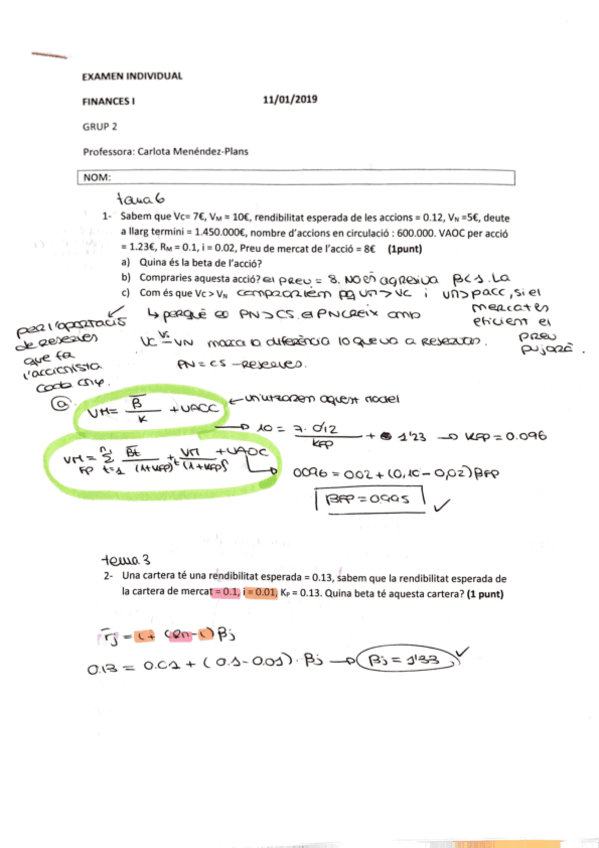 EXAMEN INDIVIDUAL
FINANCES I 11/01/2019
GRUP 2
Professora: Carlota Menéndez-Plans
NOM:
tema 6
1- Sabem que Vc= 7€, VM = 10€, rendibilitat esperada de les accions = 0.12, VN =5€, deute
a llarg termini = 1.450.000€, nombre d'accions en circulació : 600.000. VAOC per acció
= 1.23€, RM = 0.1, i = 0.02, Preu de mercat de l'acció = 8€ (1punt)
a) Quina és la beta de l'acció?
b) Compraries aquesta acció? el preu = 8. No és agresiva β<1. La
c) Com és que Vc > VN compraríem pq VM > VC i VM > pacc, si el
mercat es
eficient el
preu
pujarà.
↳ perquè el PN>CS. el PN creix amb
per l'aportació
de reserves
que fa
l'accionista
cada any.
VC vs VN marca la diferència lo que va a reserves.
PN = CS - reserves.
a) VM = B̅ / K + VAOC ← utilitzarem aquest model
→ 10 = 7 · 0'12 / KFP + 1'23 → KFP = 0.096
VM = Σ B̅t / (1+KFP)^t + VM / (1+KFP)^n + VAOC
FP t=1
0'096 = 0'02 + (0,10 - 0,02) βFP
βFP = 0'995 ✓
tema 3
2- Una cartera té una rendibilitat esperada = 0.13, sabem que la rendibilitat esperada de
la cartera de mercat = 0.1, i = 0.01, KP = 0.13. Quina beta té aquesta cartera? (1 punt)
r̅j = i + (Rm - i) βj
0.13 = 0.01 + (0.1 - 0.01) · βj → βj = 1'33 ✓